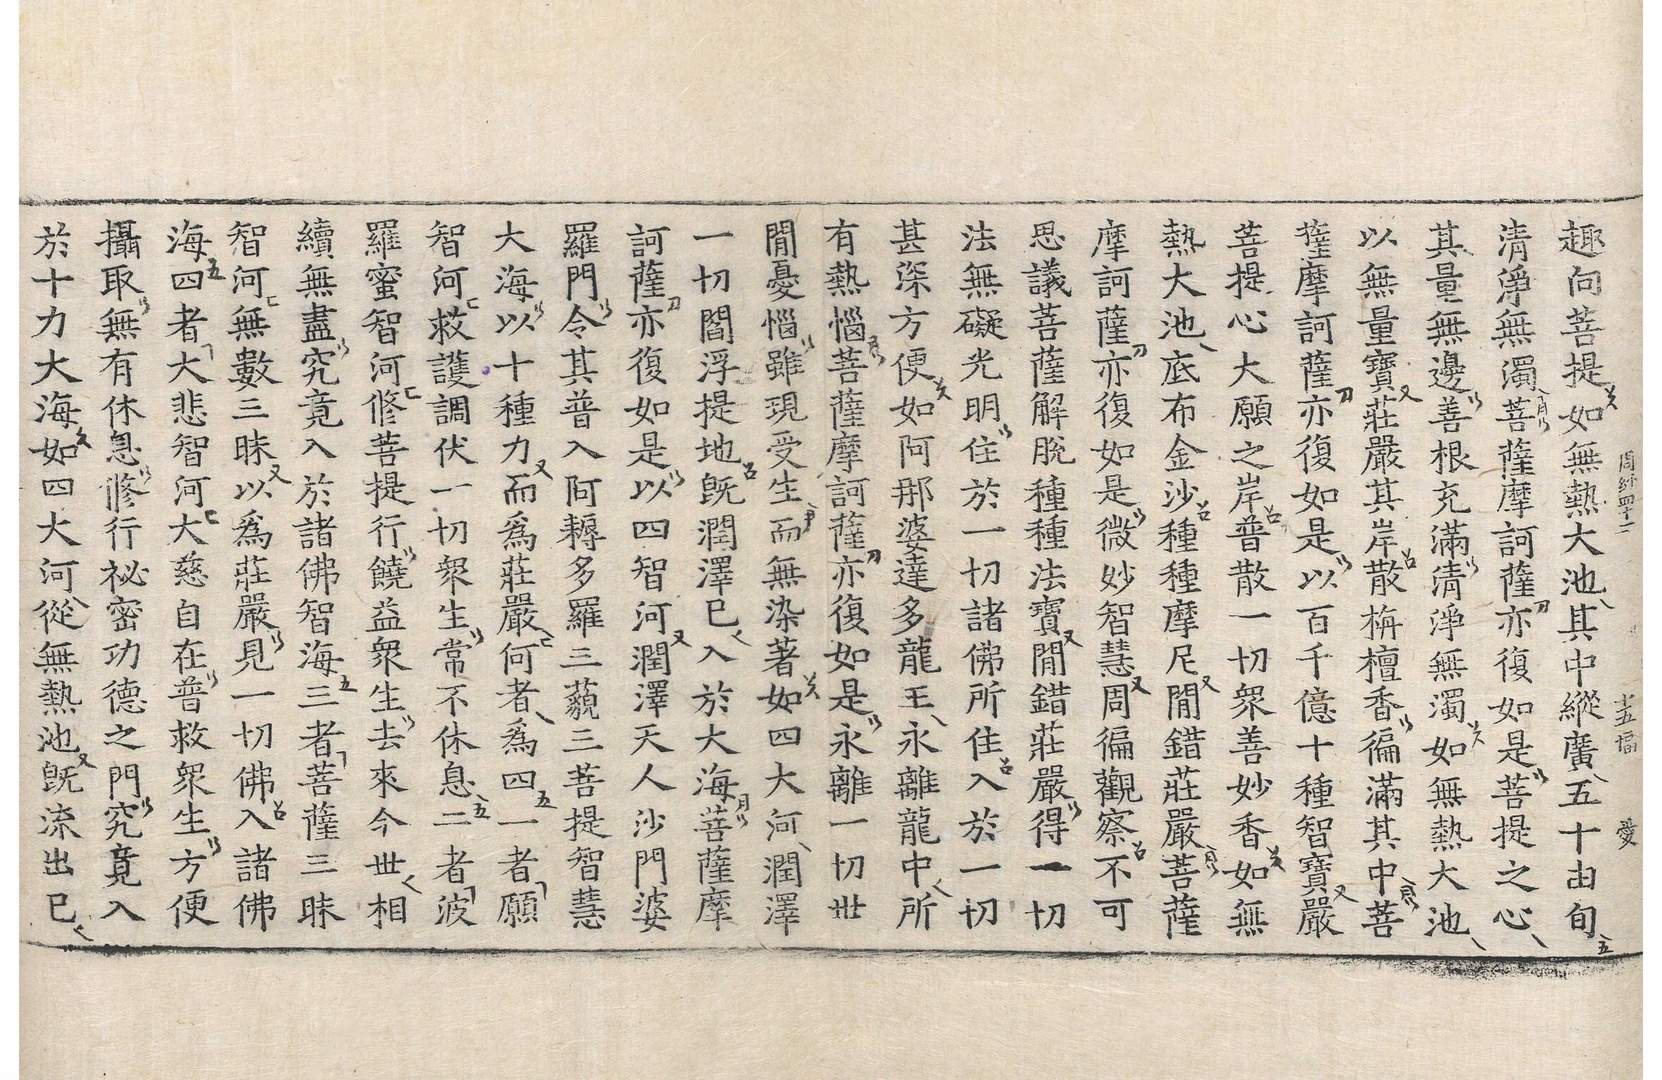 趣向菩提如無熱大池其中縱廣五十由旬
清淨無濁菩薩摩訶薩亦復如是菩提之心
其量無邊善根充滿清淨無濁如無熱大池
以無量寶莊嚴其岸散栴檀香徧滿其中菩
薩摩訶薩亦復如是以百千億十種智寶嚴
菩提心大願之岸普散一切衆善妙香如無
熱大池底布金沙種種摩尼閒錯莊嚴菩薩
摩訶薩亦復如是微妙智慧周徧觀察不可
思議菩薩解脫種種法寶閒錯莊嚴得一切
法無礙光明住於一切諸佛所住入於一切
甚深方便如阿那婆達多龍王永離龍中所
有熱惱菩薩摩訶薩亦復如是永離一切世
閒憂惱雖現受生而無染著如四大河潤澤
一切閻浮提地旣潤澤已入於大海菩薩摩
訶薩亦復如是以四智河潤澤天人沙門婆
羅門令其普入阿耨多羅三藐三菩提智慧
大海以十種力而爲莊嚴何者爲四一者願
智河救護調伏一切衆生常不休息二者波
羅蜜智河修菩提行饒益衆生去來今世相
續無盡究竟入於諸佛智海三者菩薩三昧
智河無數三昧以爲莊嚴見一切佛入諸佛
海四者大悲智河大慈自在普救衆生方便
攝取無有休息修行祕密功德之門究竟入
於十力大海如四大河從無熱池旣流出已